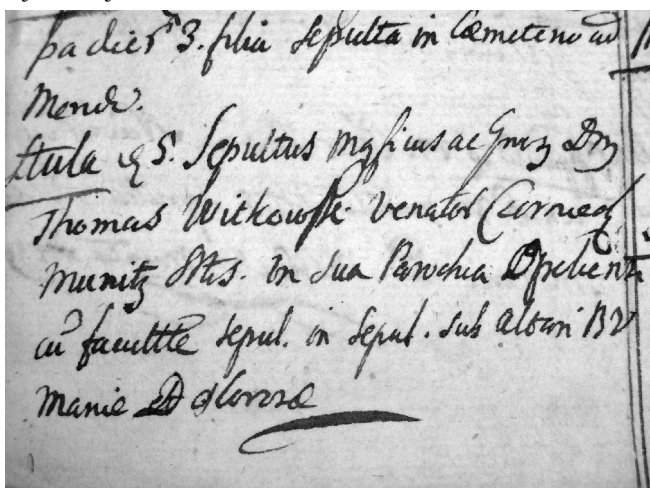 pacier 3. filia sepulta in Cæmeterio ad
Mende.
Stula 5. Sepultus Mgficus ac Gnrz Dnz
Thomas Witkowski Venator Czernieg
munitz Sttis. in sua Parochia
cū facultte sepul. in sepul. sub altari BV
Mariæ Dolorosæ